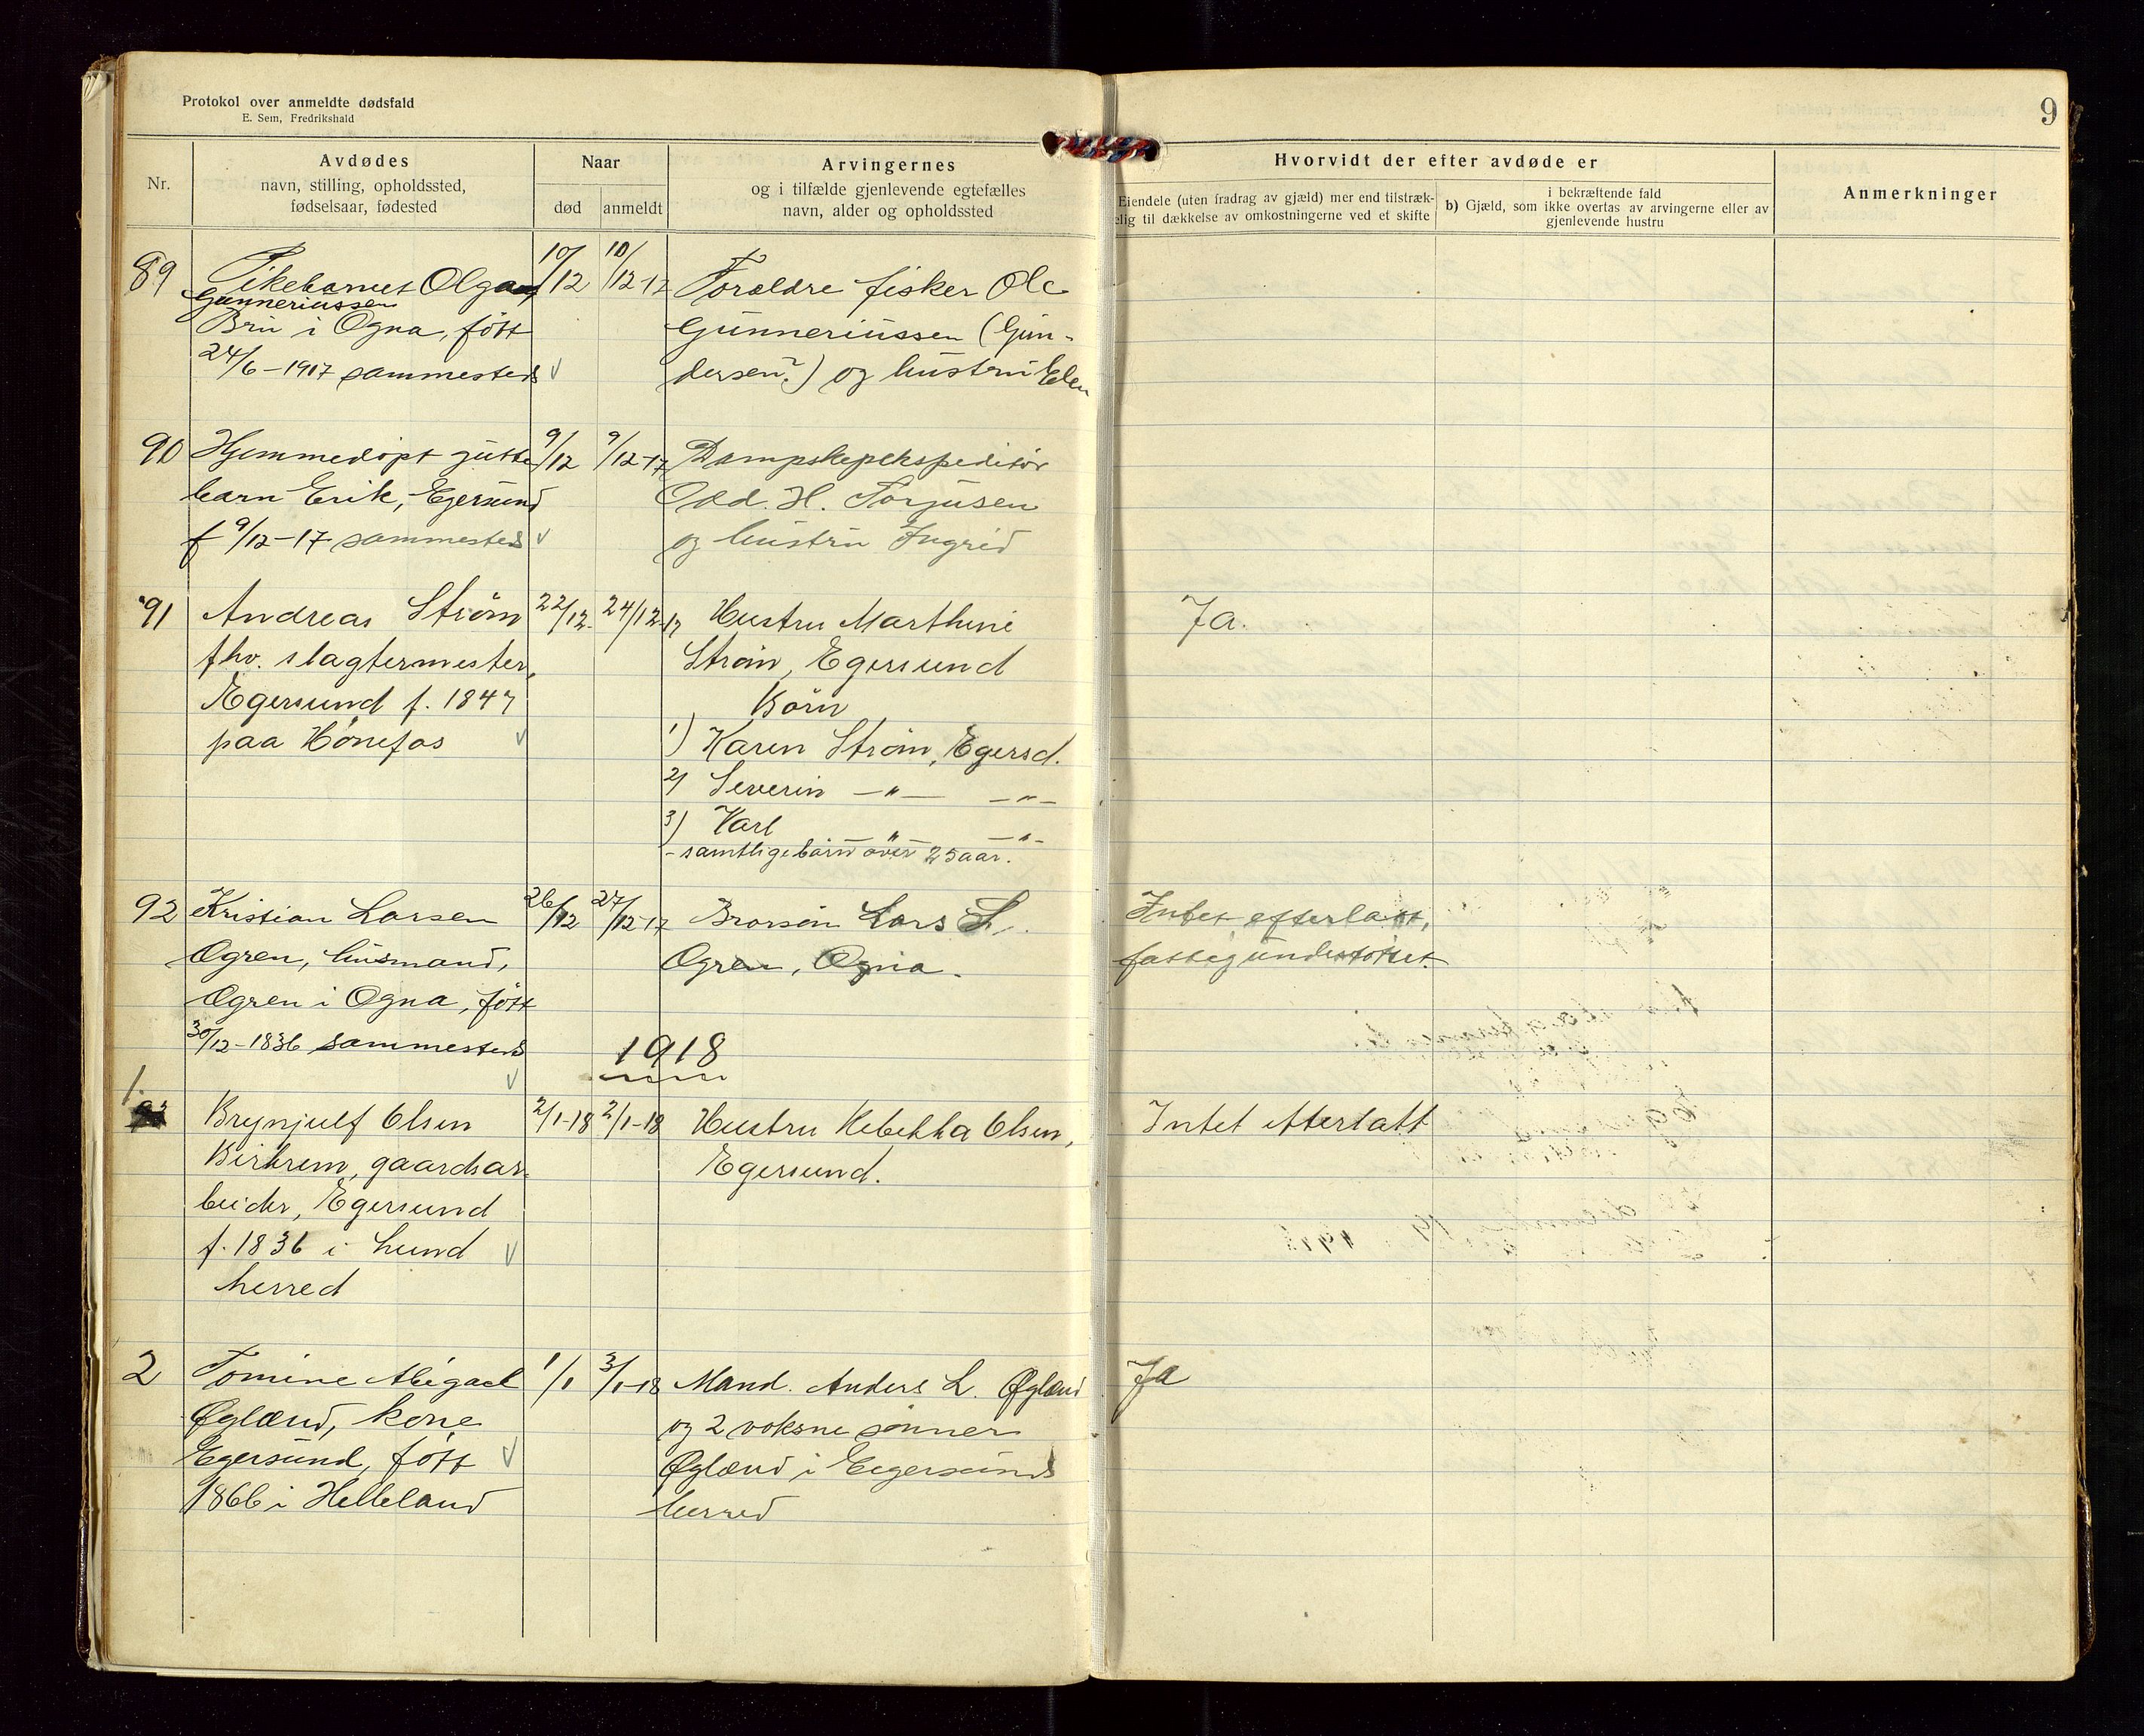 Protokol over anmeldte dødsfald
E. Sem, Fredrikshald
9
Nr.
Avdødes
navn, stilling, opholdssted,
fødselsaar, fødested
Naar
død
anmeldt
Arvingernes
og i tilfælde gjenlevende egtefælles
navn, alder og opholdssted
Hvorvidt der efter avdøde er
Eiendele (uten fradrag av gjæld) mer end tilstræk-
elig til dækkelse av omkostningerne ved et skifte
i bekræftende fald
b) Gjæld, som ikke overtas av arvingerne eller av
gjenlevende hustru
Anmerkninger
89
Pikebarnet Olga
Gunneriussen
Bru i Ogna, født
24/6-1917 sammesteds
10/12
10/12-17
Forældre fisker Ole
Gunneriussen (Gun-
dersen?) og hustru Elen
90
Hjemmedöpt gutte
barn Erik, Egersund
f 9/12-17 sammesteds
9/12
9/12-17
Dampskipekspeditör
Odd. H. Torjusen
og hustru Ingrid
91
Andreas Ström
fhv. slagtermester,
Egersund f. 1847
paa Hönefos
22/12.
24/12-17
Hustru Marthine
Ström, Egersund
Börn
1) Karen Ström, Egersd.
2) Severin —"— —"—
3) Karl —"— —"—
- samtlige börn over 25 aar.
Ja.
92
Kristian Larsen
Ogren, husmand,
Ogren i Ogna, født
30/12-1836 sammesteds
26/12
27/12-17
Brorsön Lars L.
Ogren, Ogna.
Intet efterlatt,
fattigunderstöttet.
1918
1.
Brynjulf Olsen
Birkrem, gaardsar-
beider, Egersund
f. 1836 i Lund
herred
2/1-18
2/1-18
Hustru Rebekka Olsen,
Egersund.
Intet efterlatt
2
Tomine Abigael
Øglænd, kone
Egersund, født
1866 i Helleland
1/1
3/1-18
Mand. Anders L. Øglænd
og 2 voksne sønner
Øglænd i Egersunds
herred
Ja